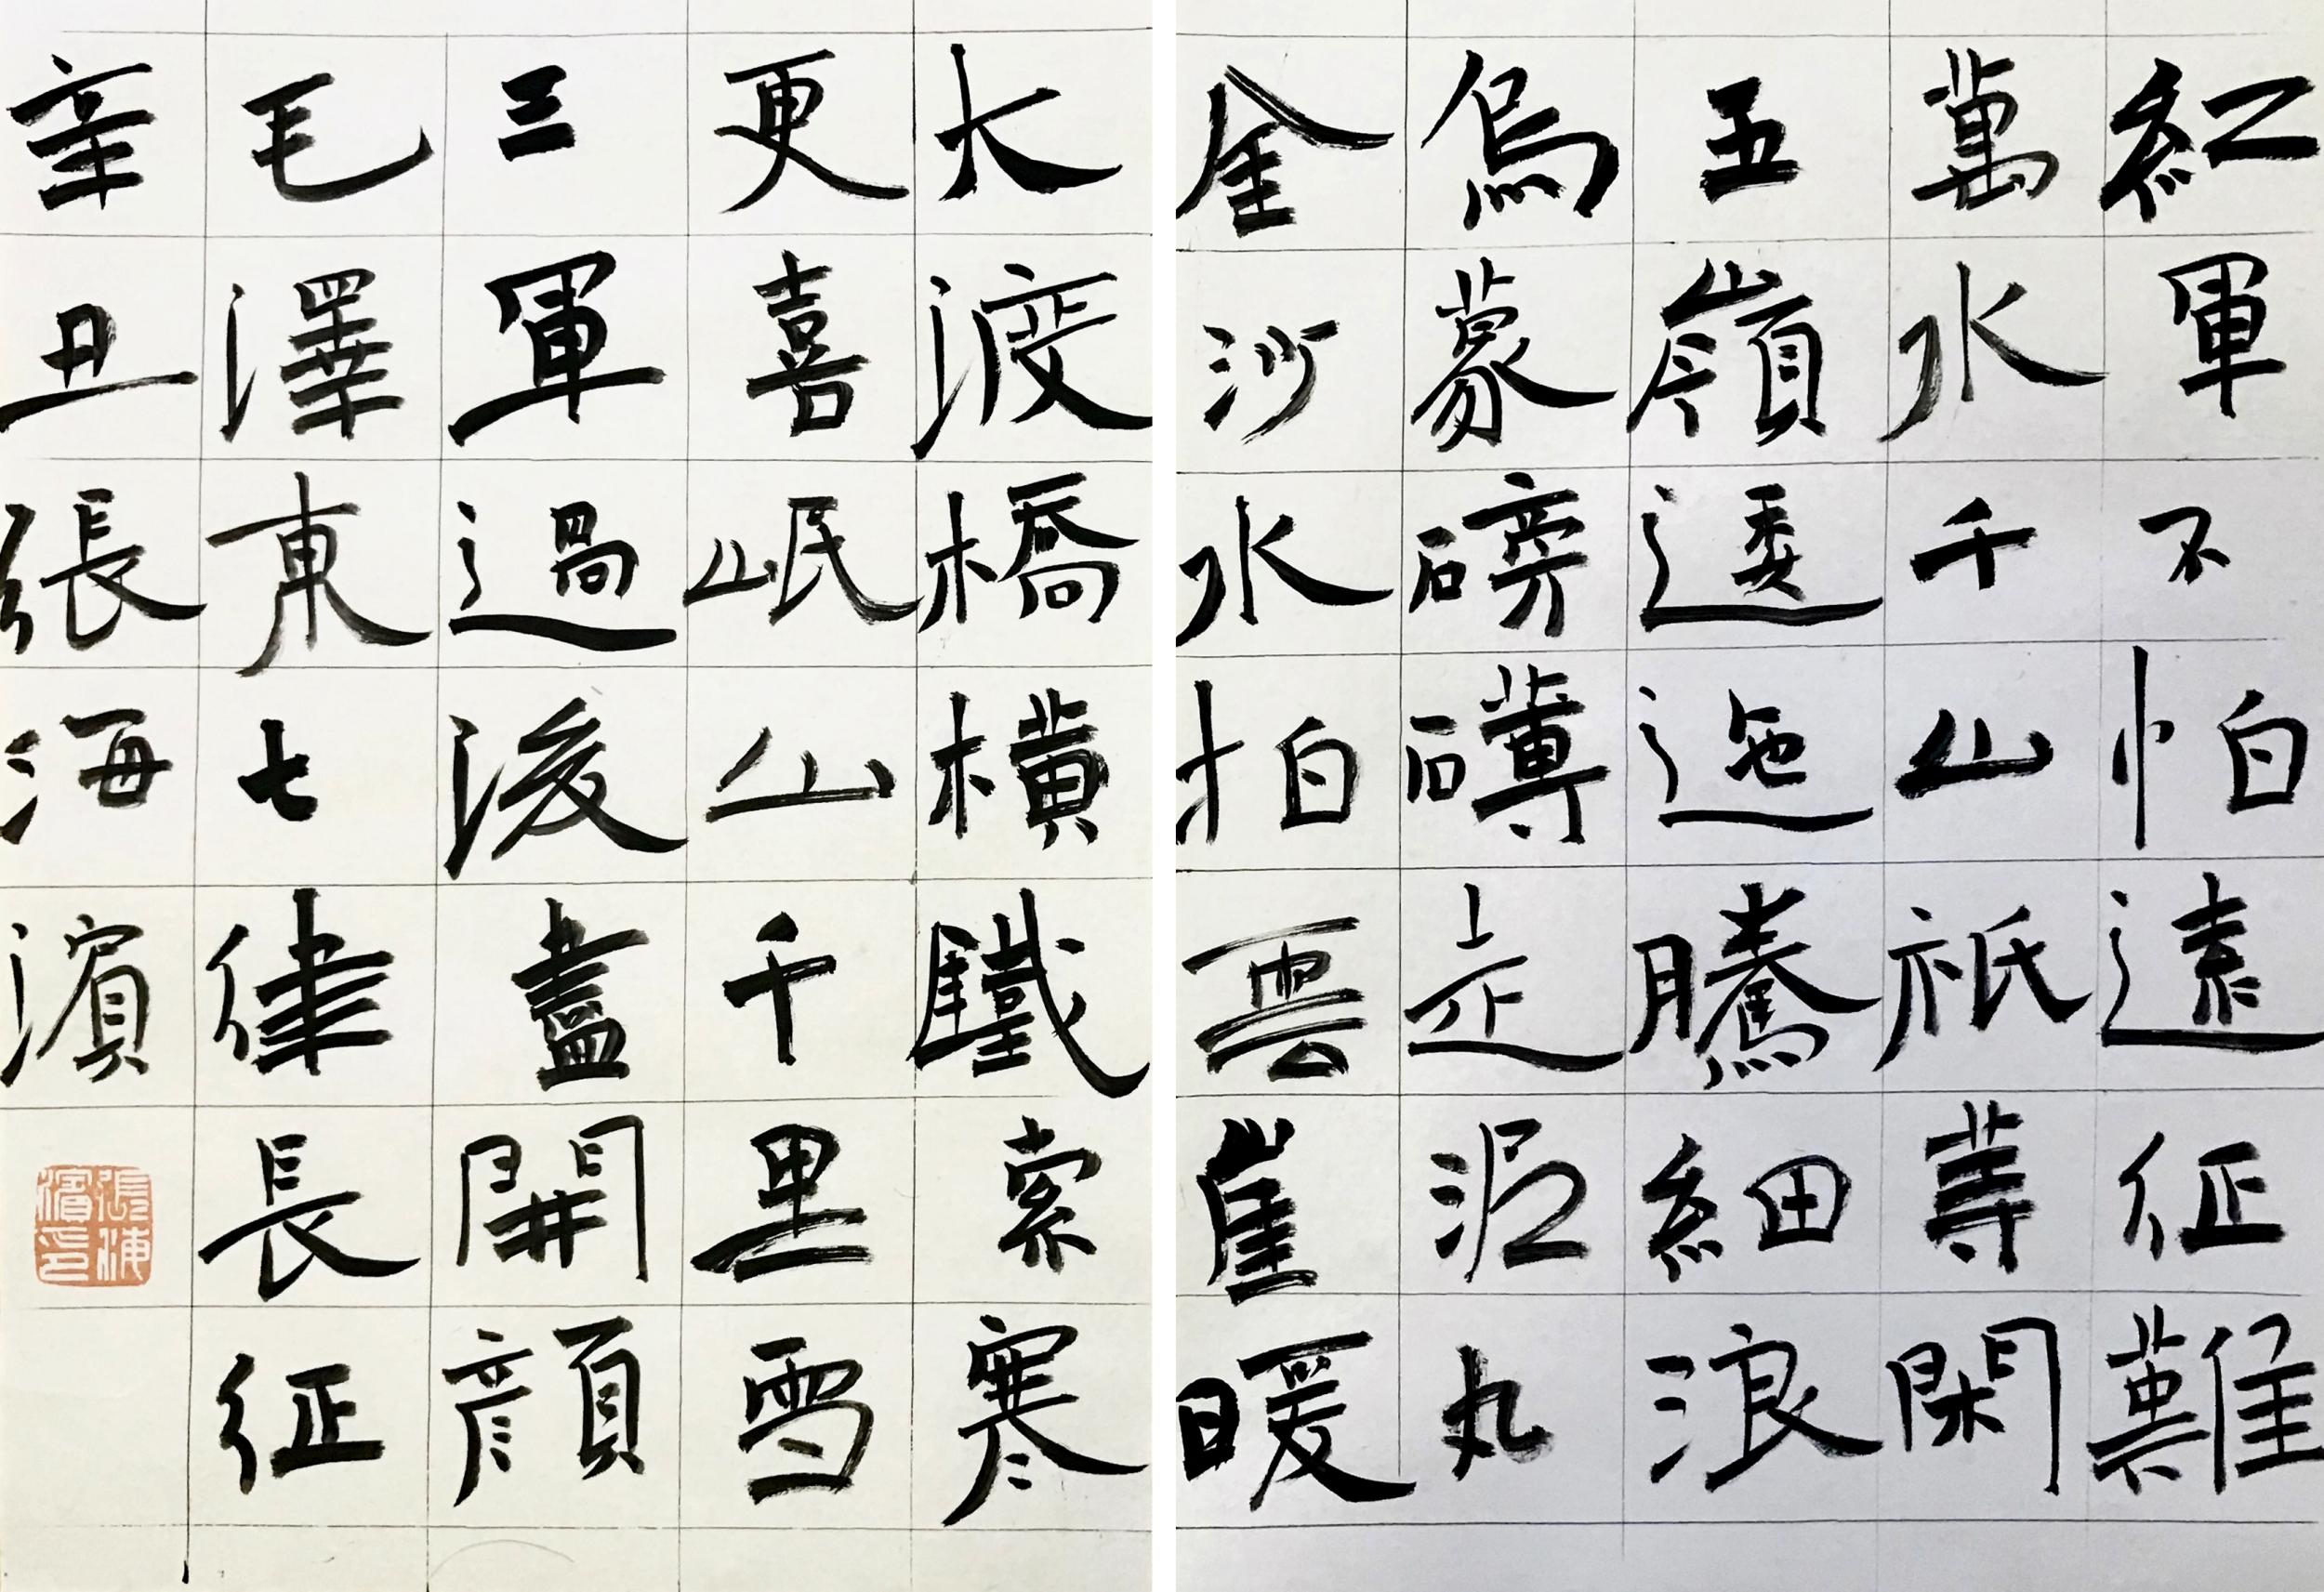 紅軍不怕遠征難
萬水千山祇等閑
五嶺逶迤騰細浪
烏蒙磅礴走泥丸
金沙水拍雲崖暖
大渡橋橫鐵索寒
更喜岷山千里雪
三軍過後盡開顏
毛澤東七律長征
辛丑張海濱
張海濱印